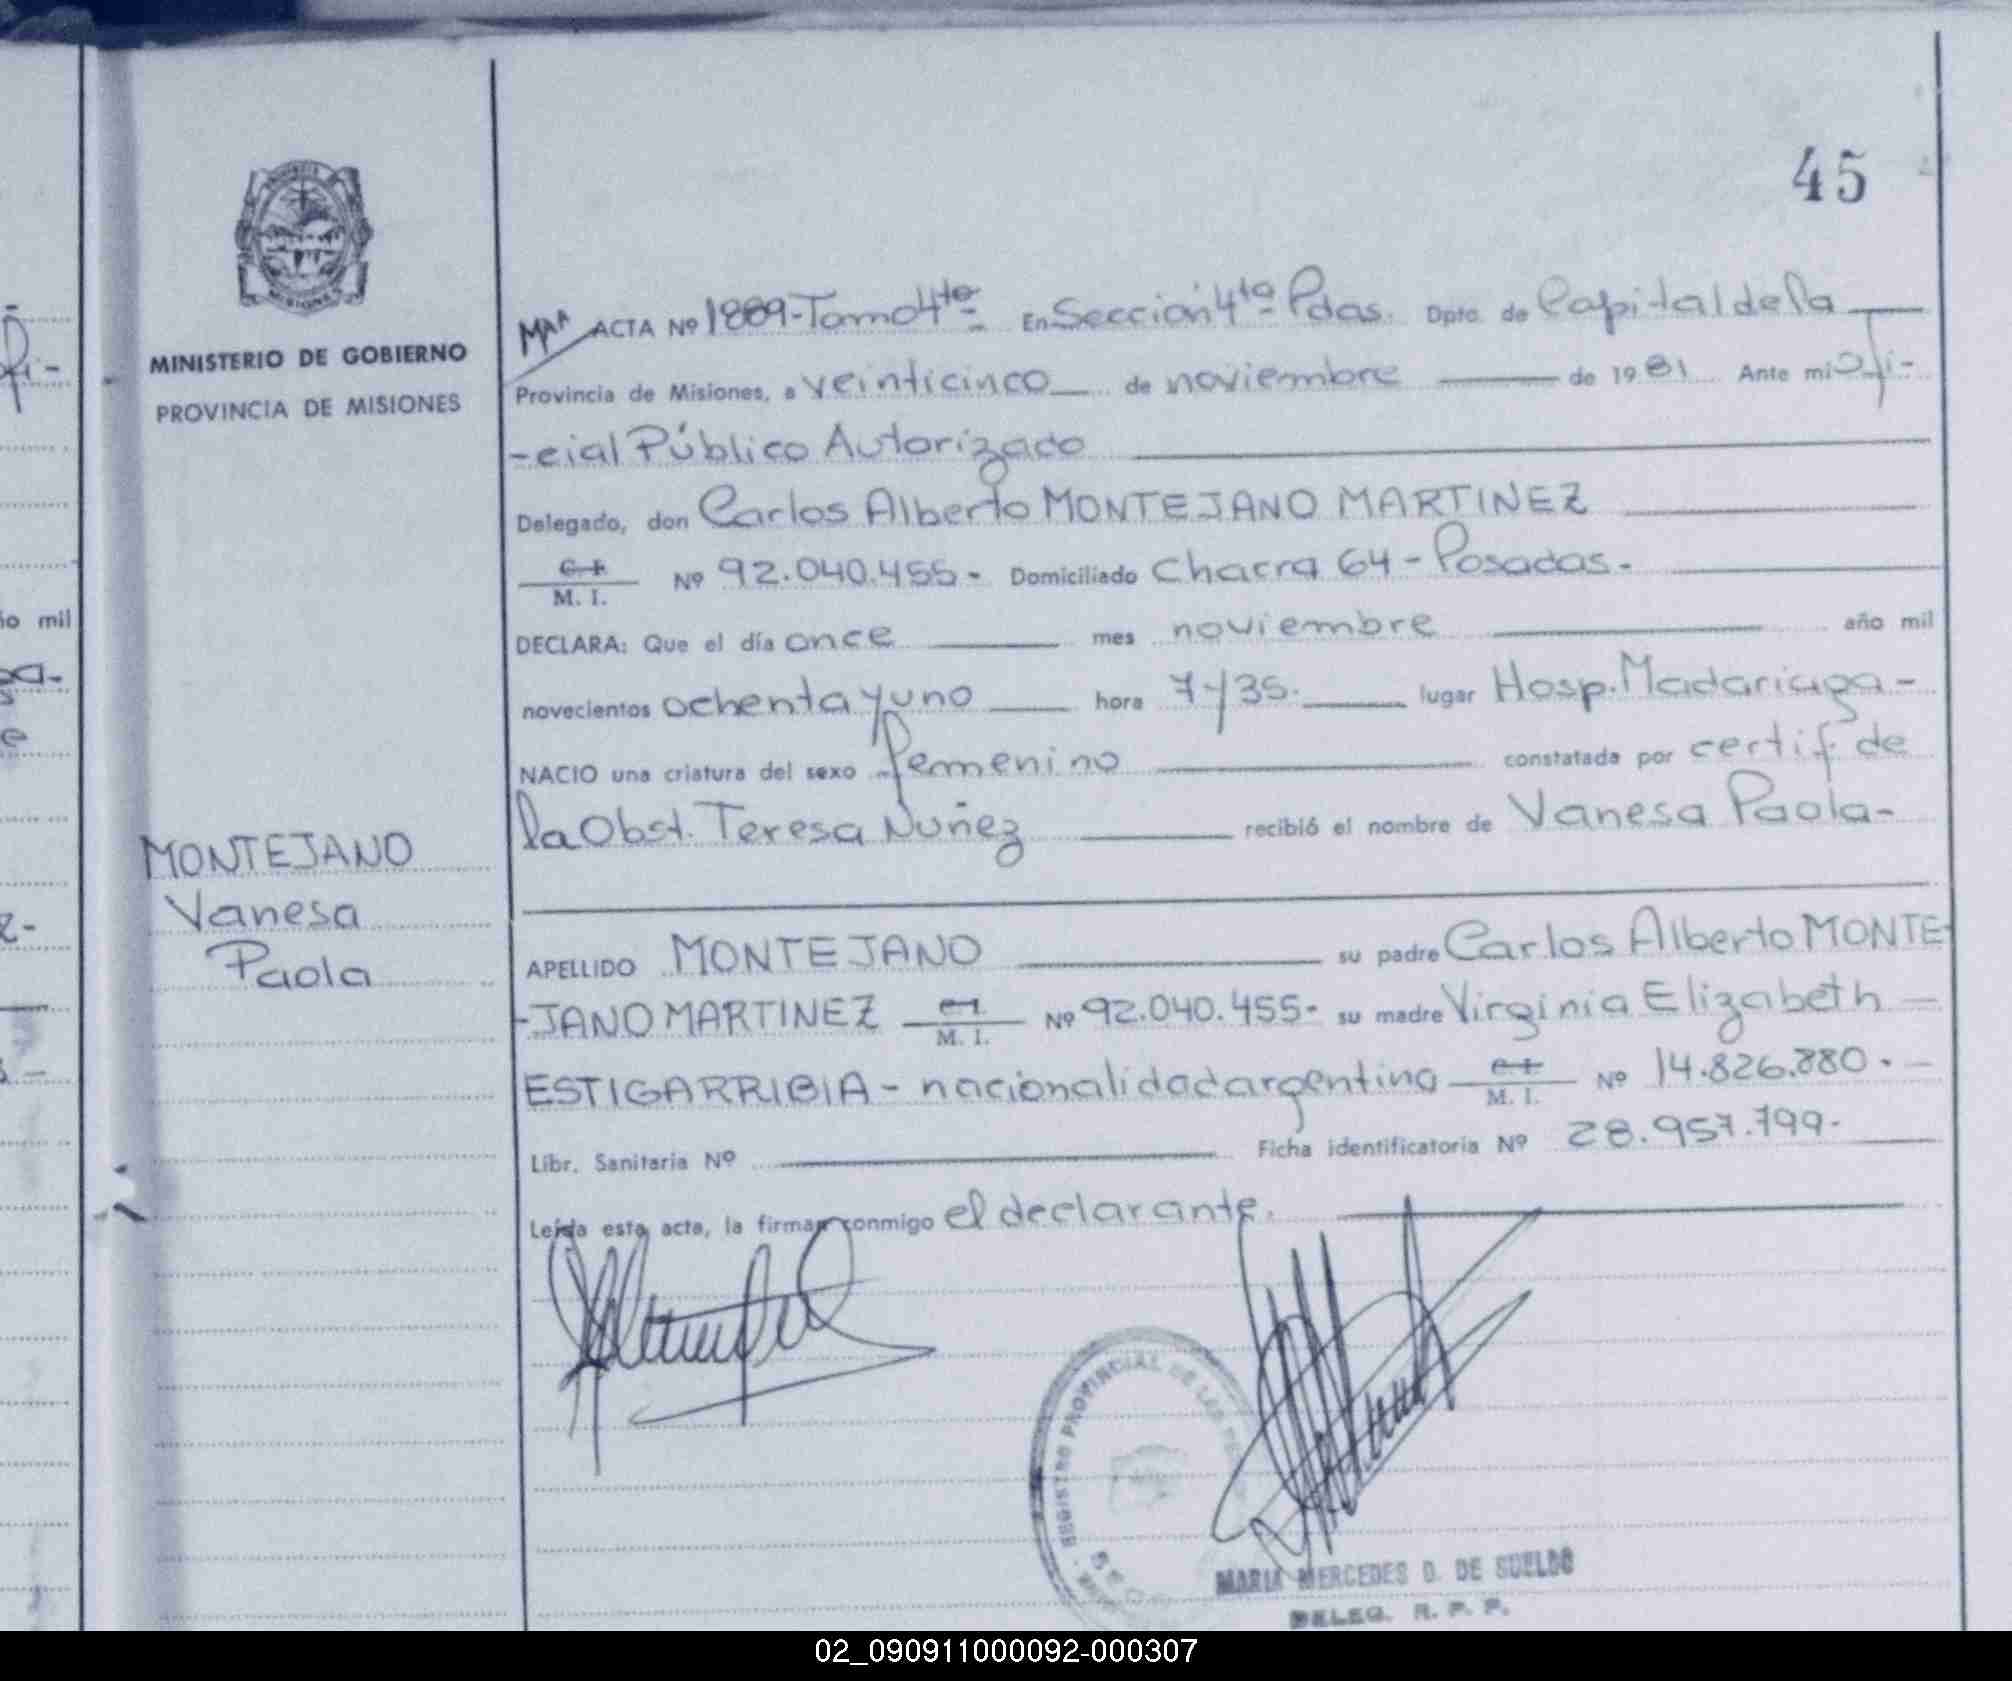 45
MINISTERIO DE GOBIERNO
PROVINCIA DE MISIONES
MAA ACTA Nº 1889-Tomo 4to- En Sección 4ta Pdas. Dpto. de Capital de la
Provincia de Misiones, a veinticinco de noviembre de 1981 Ante mi Ofi-
-cial Público Autorizado
Delegado, don Carlos Alberto MONTEJANO MARTINEZ
C. I. M. I. Nº 92.040.455- Domiciliado Chacra 64 - Posadas.-
DECLARA: Que el día once mes noviembre año mil
novecientos ochenta y uno hora 7 y 35. lugar Hosp. Madariaga-
NACIO una criatura del sexo femenino constatada por certif. de
la Obst. Teresa Nuñez recibió el nombre de Vanesa Paola-
MONTEJANO
Vanesa
Paola
APELLIDO MONTEJANO su padre Carlos Alberto MONTE-
-JANO MARTINEZ C. I. M. I. Nº 92.040.455- su madre Virginia Elizabeth
ESTIGARRIBIA - nacionalidad argentina C. I. M. I. Nº 14.826.880.-
Libr. Sanitaria Nº Ficha identificatoria Nº 28.957.799-
Leída esta acta, la firman conmigo el declarante.
REGISTRO PROVINCIAL DE LAS
MARIA MERCEDES D. DE SUELDO
DELEG. R. P. P.
02_090911000092-000307